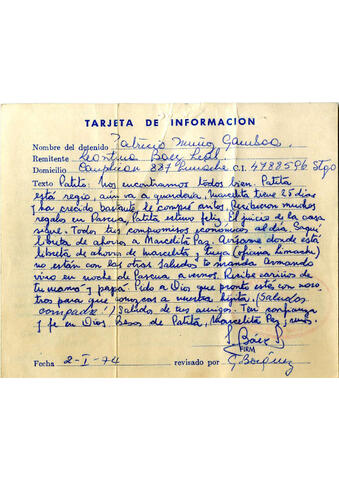 TARJETA DE INFORMACION
Nombre del detenido Patricio Muñoz Gamboa
Remitente Leontina Báez Leal
Domicilio 887 Limache C.I. 4788596 Stgo
Texto Patito: Nos encontramos todos bien. Patita
está regio, aún va a guardería, Marcelita tiene 25 días
y ha crecido bastante, le compré aritos. Recibieron muchos
regalos en Pascua, Patita estuvo feliz. El juicio de la casa
sigue. Todos tus compromisos económicos al día. Saqué
libreta de ahorro a Marcelita Paz. Avísame donde está
libreta de ahorro de Marcelita y tuya (oficina Limache)
no están con las otras. Saludos te manda Armando
vino en noche de Pascua a vernos. Recibe cariños de
tu mamá y papá. Pido a Dios que pronto estés con noso-
tros para que conozcas a nuestra hijita. (Saludos
compadre) Saludos de tus amigos. Ten confianza
y fe en Dios. Besos de Patita, Marcelita Paz y míos.
L Báez L
FIRMA
Fecha 2-I-74 revisado por